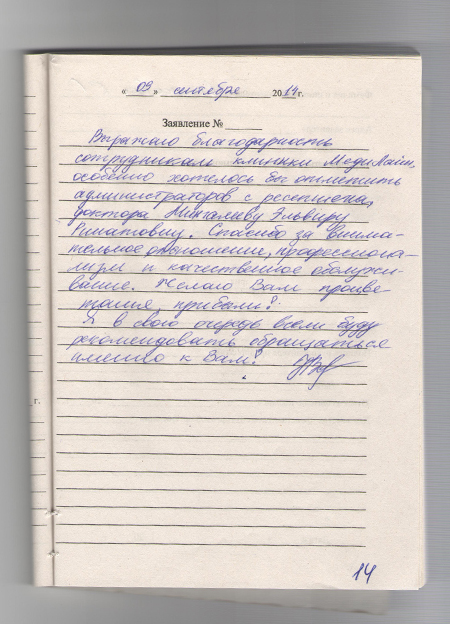 « 09 » сентября 2014 г.
Заявление №
Выражаю благодарность
сотрудникам клиники МедиЛайн,
особенно хотелось бы отметить
администраторов с ресепшена,
доктора Мингалееву Эльвиру
Ринатовну. Спасибо за внима-
тельное отношение, профессиона-
лизм и качественное обслужи-
вание. Желаю Вам процве-
тания, прибыли!
Я в свою очередь всем буду
рекомендовать обращаться
именно к Вам!
г.
14